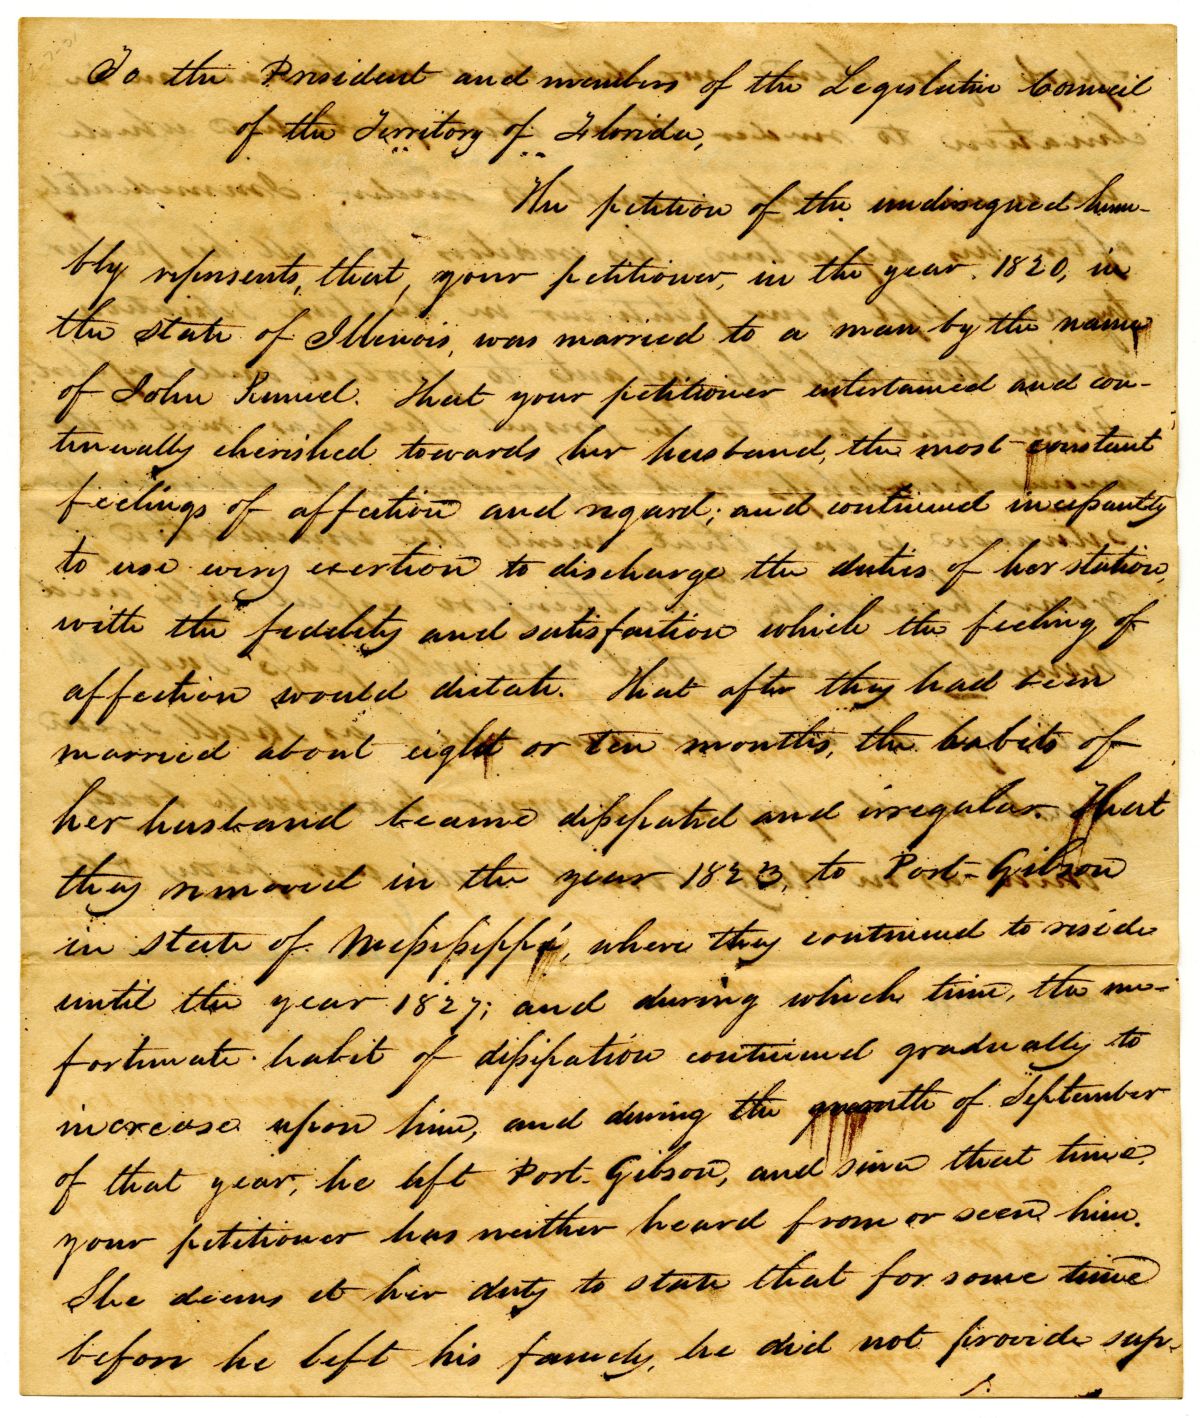 To the President and members of the Legislative Council
of the Territory of Florida,
The petition of the undersigned hum-
bly represents, that, your petitioner, in the year 1820, in
the State of Illinois, was married to a man by the name
of John. That your petitioner entertained and con-
tinually cherished towards her husband, the most constant
feelings of affection and regard; and continued incessantly
to use every exertion to discharge the duties of her station,
with the fidelity and satisfaction which the feeling of
affection would dictate. That after they had been
married about eight or ten months, the habits of
her husband became dissipated and irregular. That
they removed in the year 1823, to Port-Gibson
in state of Mississippi, where they continued to reside
until the year 1827; and during which time, the un-
fortunate habit of dissipation continued gradually to
increase upon him, and during the month of September
of that year, he left Port-Gibson, and since that time,
your petitioner has neither heard from or seen him.
She deems it her duty to state that for some time
before he left his family, he did not provide sup-